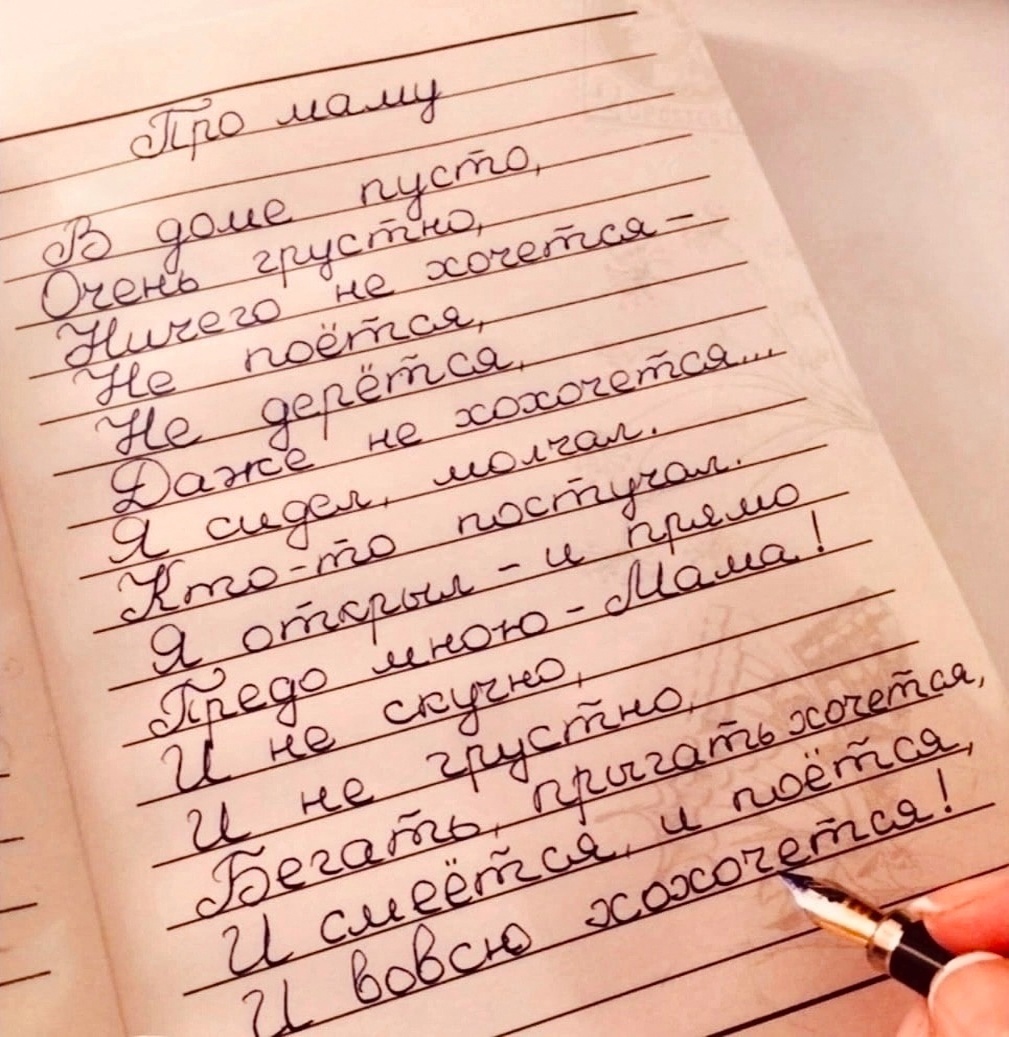 Про маму
В доме пусто,
Очень грустно,
Ничего не хочется –
Не поётся,
Не дерётся,
Даже не хохочется...
Я сидел, молчал.
Кто-то постучал.
Я открыл – и прямо
Предо мною – Мама!
И не скучно,
И не грустно,
Бегать, прыгать хочется,
И смеётся, и поётся,
И вовсю хохочется!